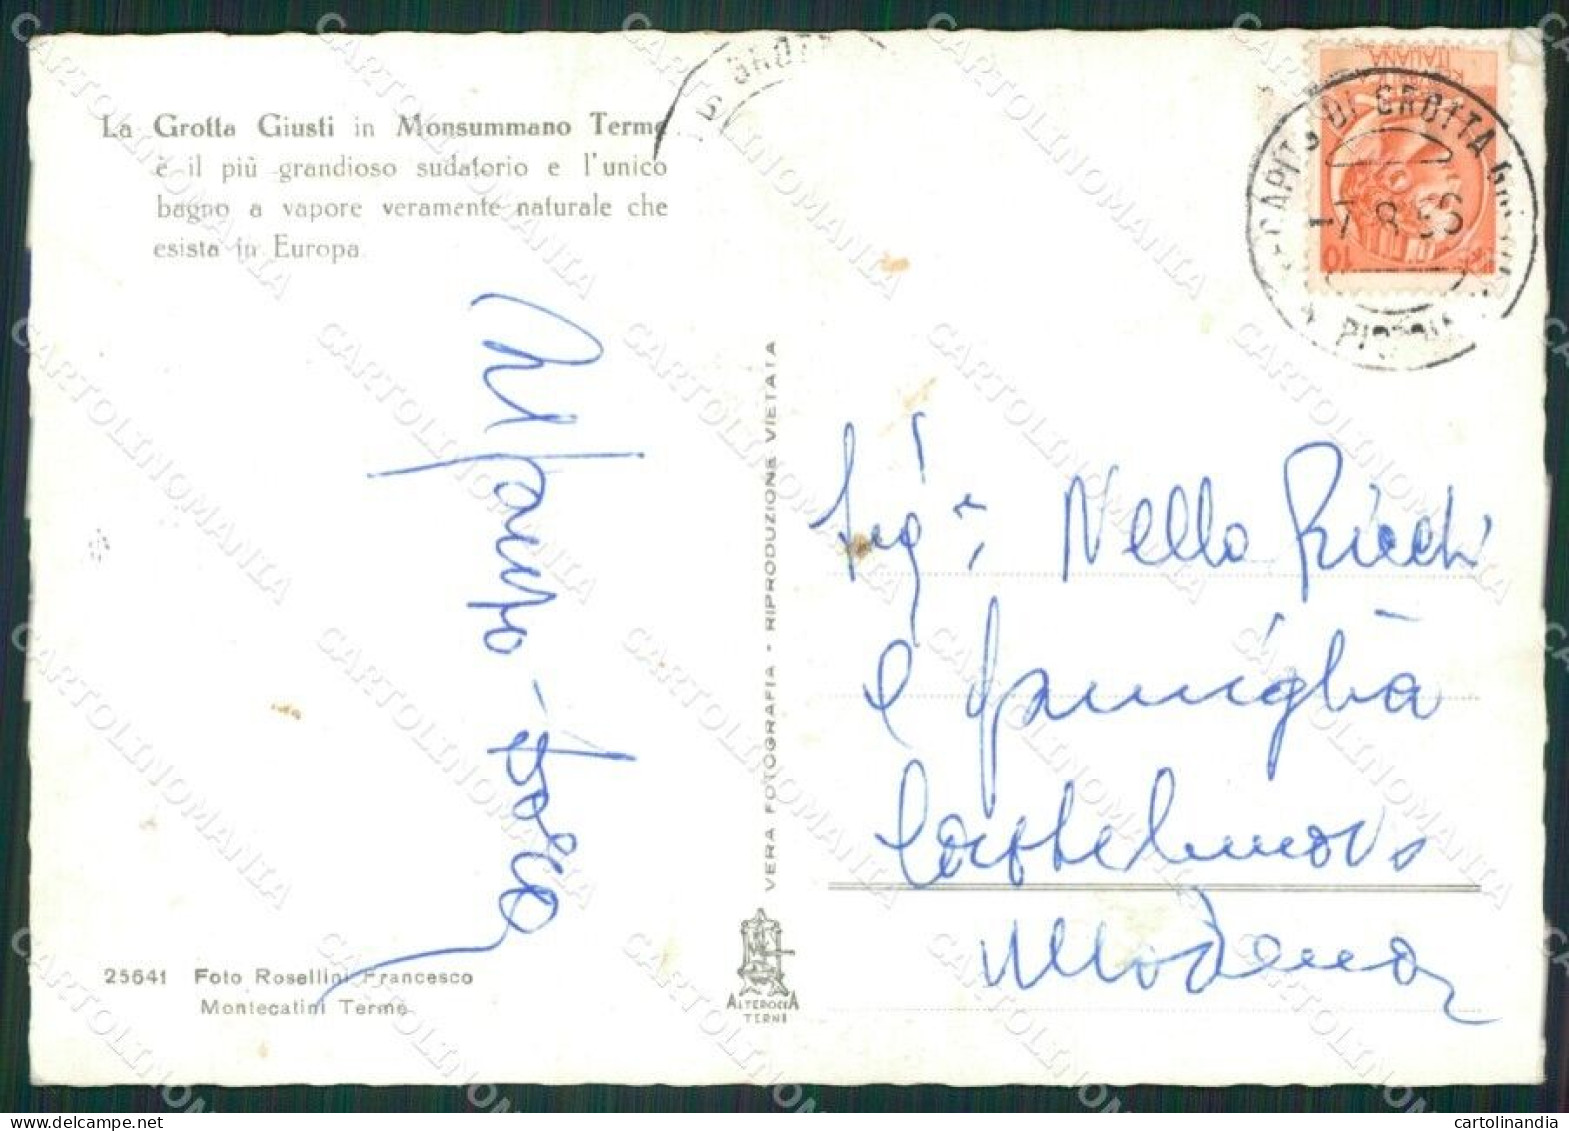 La Grotta Giusti in Monsummano Terme
è il più grandioso sudatorio e l'unico
bagno a vapore veramente naturale che
esista in Europa.
VERA FOTOGRAFIA - RIPRODUZIONE VIETATA
25641 Foto Rosellini Francesco
Montecatini Terme
ALTEROCCA
TERNI
ITALIANA
10
DI GROTTA
-7.8.56
PISTOIA
Nello Ricchi
e famiglia
Castelnuovo
Modena
CARTOLINOMANIA
cartolinandia